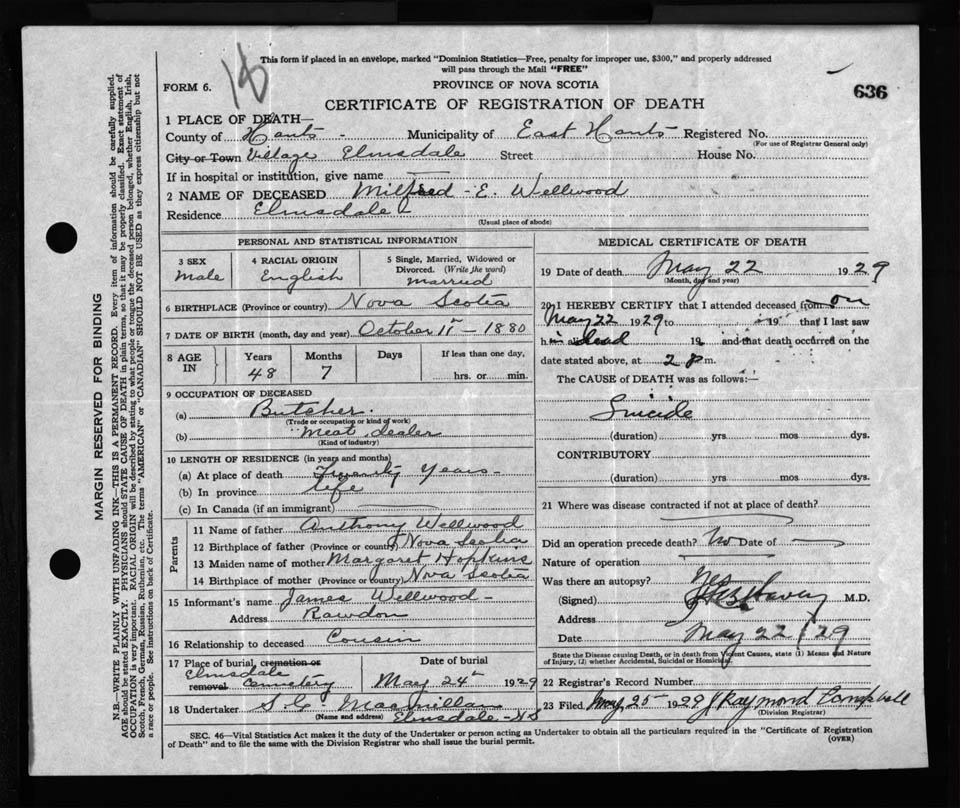 18
This form if placed in an envelope, marked "Dominion Statistics—Free, penalty for improper use, $300," and properly addressed
will pass through the Mail "FREE"
FORM 6.
PROVINCE OF NOVA SCOTIA
636
CERTIFICATE OF REGISTRATION OF DEATH
1 PLACE OF DEATH—
County of Hants - Municipality of East Hants Registered No.
(For use of Registrar General only)
City or Town Village Elmsdale Street House No.
If in hospital or institution, give name
2 NAME OF DECEASED Milfred - E. Wellwood
Residence Elmsdale
(Usual place of abode)
PERSONAL AND STATISTICAL INFORMATION
3 SEX
Male
4 RACIAL ORIGIN
English
5 Single, Married, Widowed or
Divorced. (Write the word)
Married
6 BIRTHPLACE (Province or country) Nova Scotia
7 DATE OF BIRTH (month, day and year) October 11 - 1880
8 AGE IN
Years Months Days If less than one day,
48 7 hrs. or min.
9 OCCUPATION OF DECEASED
(a) Butcher.
(Trade or occupation or kind of work)
(b) "Meat dealer
(Kind of industry)
10 LENGTH OF RESIDENCE (in years and months)
(a) At place of death Twenty Years -
(b) In province life
(c) In Canada (if an immigrant)
Parents
11 Name of father Anthony Wellwood
12 Birthplace of father (Province or country) Nova Scotia
13 Maiden name of mother Margaret Hopkins
14 Birthplace of mother (Province or country) Nova Scotia
15 Informant's name James Wellwood -
Address Rawdon
16 Relationship to deceased Cousin
17 Place of burial, cremation or removal
Elmsdale
Cemetery
Date of burial
May 24th 1929
18 Undertaker S C MacMillan
(Name and address) Elmsdale - NS
MEDICAL CERTIFICATE OF DEATH
19 Date of death May 22 1929
(Month, day and year)
20 I HEREBY CERTIFY that I attended deceased from on
May 22 1929 to 19 that I last saw
him alive dead 19 and that death occurred on the
date stated above, at 2 p m.
The CAUSE of DEATH was as follows:—
Suicide
(duration) yrs mos dys.
CONTRIBUTORY
(duration) yrs mos dys.
21 Where was disease contracted if not at place of death?
Did an operation precede death? No Date of
Nature of operation
Was there an autopsy? Yes
(Signed) M.D.
Address
Date May 22 / 29
State the Disease causing Death, or in death from Violent Causes, state (1) Means and Nature
of Injury, (2) whether Accidental, Suicidal or Homicidal.
22 Registrar's Record Number
23 Filed May 25 1929 J Raymond Campbell
(Division Registrar)
SEC. 46—Vital Statistics Act makes it the duty of the Undertaker or person acting as Undertaker to obtain all the particulars required in the "Certificate of Registration
of Death" and to file the same with the Division Registrar who shall issue the burial permit.
(OVER)
MARGIN RESERVED FOR BINDING
N.B.—WRITE PLAINLY WITH UNFADING INK—THIS IS A PERMANENT RECORD. Every item of information should be carefully supplied.
AGE should be stated EXACTLY. PHYSICIANS should STATE CAUSE OF DEATH in plain terms, so that it may be properly classified. Exact statement of
OCCUPATION is very important. RACIAL ORIGIN will be described by stating to what people or tongue the deceased person belonged, whether English, Irish,
Scotch, French, German, Russian, Ruthenian, etc. The terms "AMERICAN" or "CANADIAN" SHOULD NOT BE USED as they express citizenship but not
a race or people. See instructions on back of Certificate.